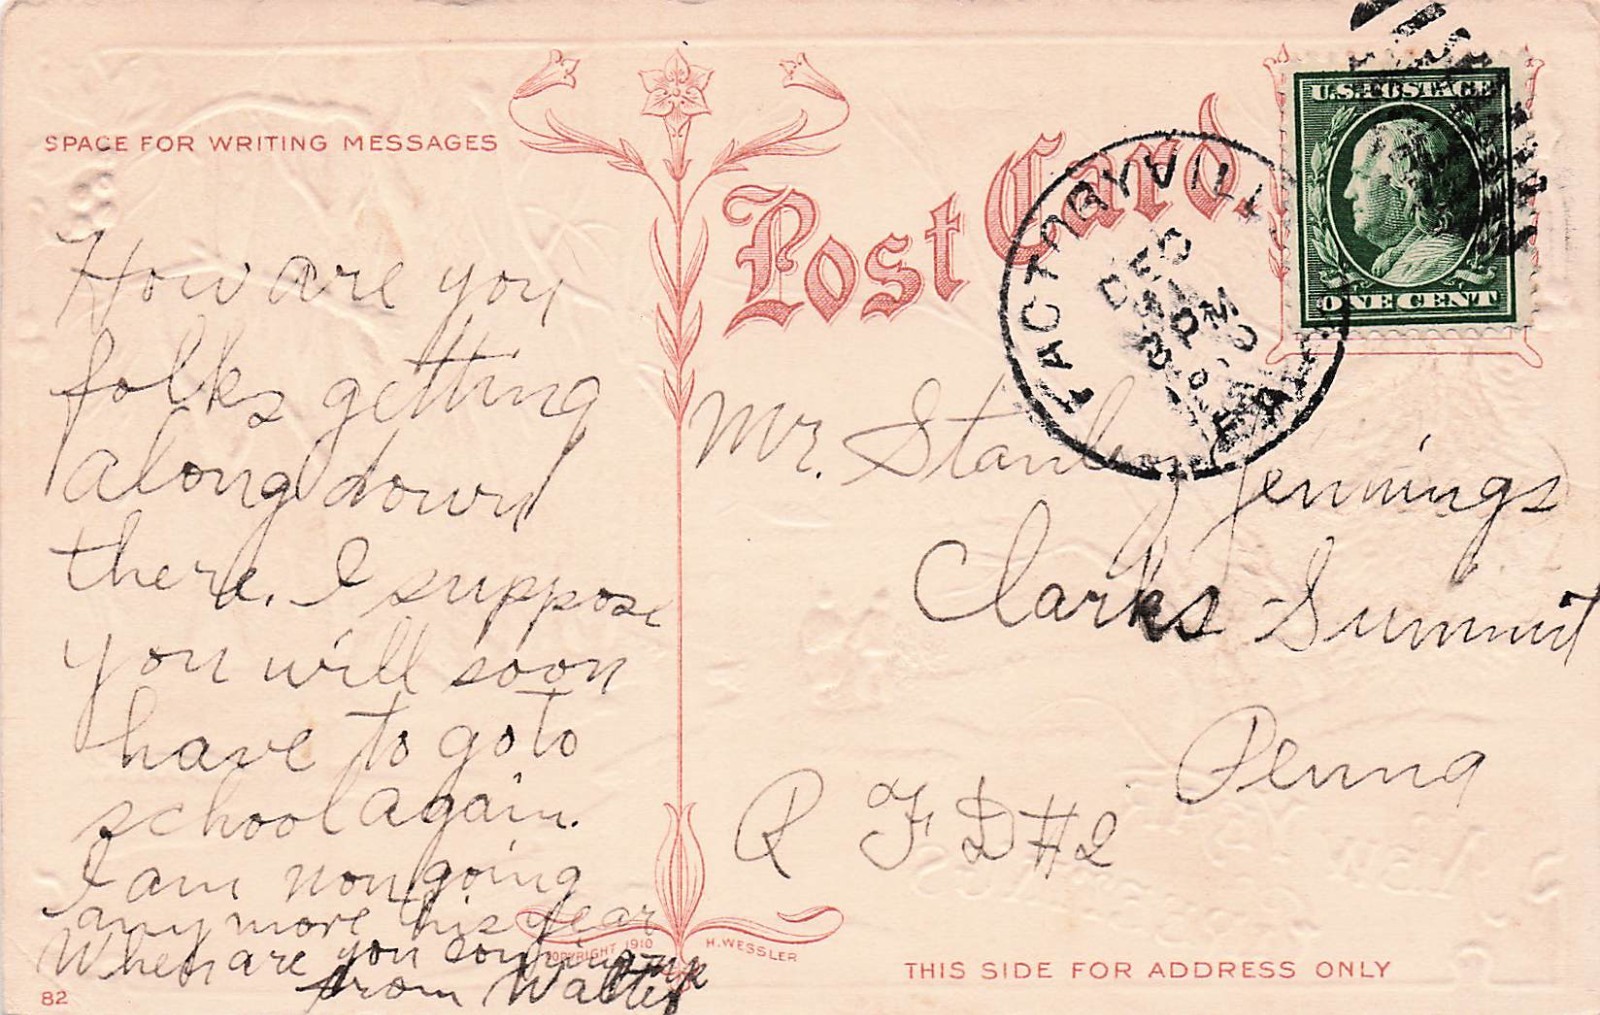 SPACE FOR WRITING MESSAGES
Post Card.
U.S. POSTAGE
ONE CENT
FACTORYVILLE
DEC
PM
PA.
How are you
folks getting
along down
there. I suppose
you will soon
have to go to
school again.
I am not going
any more this year
When are you coming up
from Walter
Mr. Stanley Jennings
Clarks Summit
Penna
R F D #2
COPYRIGHT 1910 H. WESSLER
THIS SIDE FOR ADDRESS ONLY
82